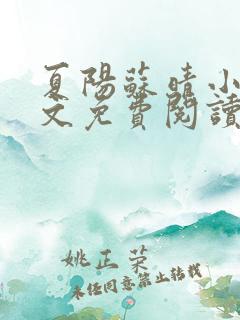 夏陽蘇晴小
文免費閱讀
姚正荣
未经同意禁止转载